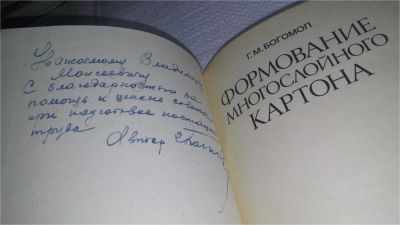 Уважаемому Владимиру
Моисеевичу
С благодарностью за
помощь и ценные советы
при подготовке настоящего
труда
Автор
Г.М. БОГОМОЛ
ФОРМОВАНИЕ
МНОГОСЛОЙНОГО
КАРТОНА